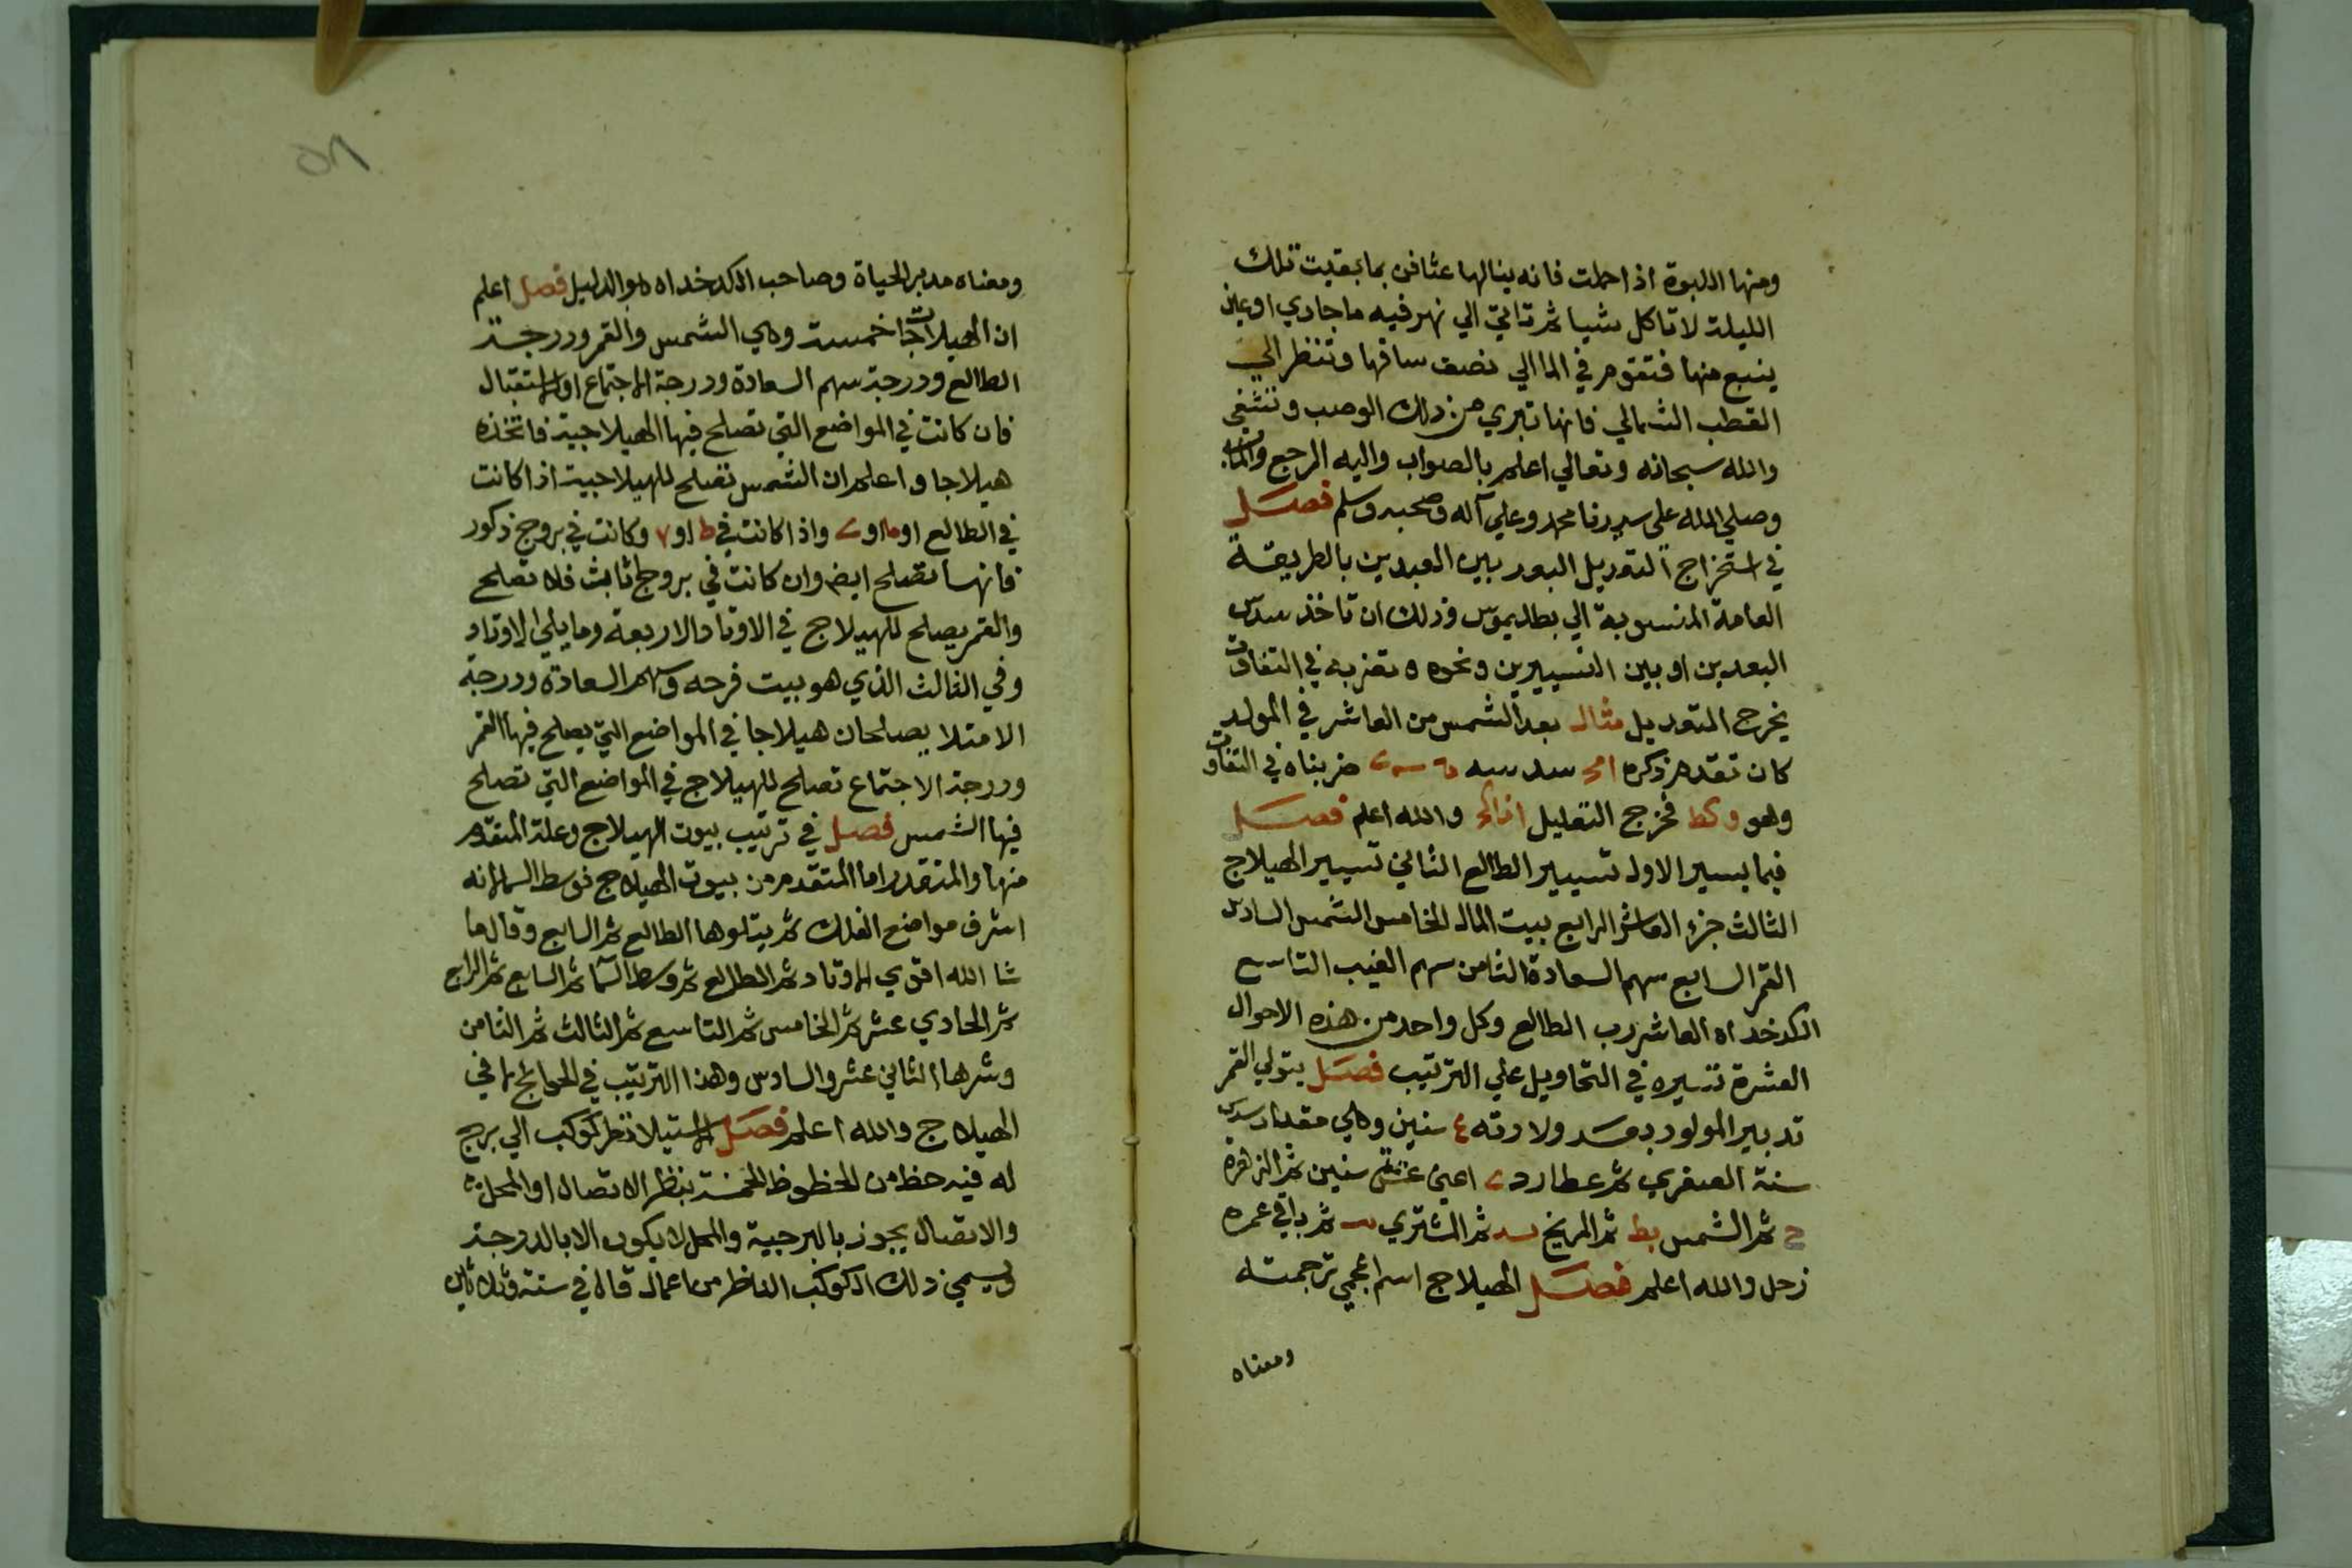 ومنها اللبوة اذا حملت فانه ينالها عثافن بما بقيت تلك
الليلة لا تاكل شيا ثم تاتي الي نهر فيه ما جاري او عين
ينبع منها فتقوم في الما الي نصف ساقها وتنظر الي
القطب الشمالي فانها تبري من ذلك الوصب وتشفي
والله سبحانه وتعالي اعلم بالصواب واليه المرجع والماب
وصلي الله على سيدنا محمد وعلي آله وصحبه وسلم فصل
في استخراج التعديل البعد بين البعدين بالطريقة
العامة المنسوبة الي بطليموس وذلك ان تاخذ سدس
البعدين او بين التسييرين ونحوه وتضربه في التفاوت
يخرج التعديل مثال بعد الشمس من العاشر في المولد
كان تقدم ذكره سدسه ضربناه في التفاوت
وهو وكط فخرج التعليل والله اعلم فصل
فيما يسير الاول تسيير الطالع الثاني تسيير الهيلاج
الثالث جزء العاشر الرابع بيت المال الخامس الشمس السادس
القمر السابع سهم السعادة الثامن سهم الغيب التاسع
الكدخداه العاشر رب الطالع وكل واحد من هذه الاحوال
العشرة تسيره في التحاويل علي الترتيب فصل يتولي القمر
تدبير المولود بعد ولادته ٤ سنين وهي مقدار سدس
سنة الصغري ثم عطارد ي اعني عشر سنين ثم الزهرة
ح ثم الشمس يط ثم المريخ يه ثم المشتري يب ثم باقي عمره
زحل والله اعلم فصل الهيلاج اسم اعجمي ترجمته
ومعناه
٥٨
ومعناه مدبر الحياة وصاحب الكدخداه هو الدليل فصل اعلم
ان الهيلاجات خمسة وهي الشمس والقمر ودرجة
الطالع ودرجة سهم السعادة ودرجة الاجتماع او الاستقبال
فان كانت في المواضع التي تصلح فيها الهيلاجية فاتخذه
هيلاجا واعلم ان الشمس تصلح للهيلاجية اذا كانت
في الطالع او يا او ي واذا كانت في ط او ٧ وكانت في بروج ذكور
فانها تصلح ايض وان كانت في بروج اناث فلا تصلح
والقمر يصلح للهيلاج في الاوتاد الاربعة وما يلي الاوتاد
وفي الثالث الذي هو بيت فرحه وسهم السعادة ودرجة
الامتلا يصلحان هيلاجا في المواضع التي يصلح فيها القمر
ودرجة الاجتماع تصلح للهيلاج في المواضع التي تصلح
فيها الشمس فصل في ترتيب بيوت الهيلاج وعلة المتقدم
منها والمتقدم اما المتقدم من بيوت الهيلاج فوسط السما لانه
اشرف مواضع الفلك ثم يتلوها الطالع ثم السابع وقال ما
شا الله اقوي الاوتاد ثم الطالع ثم وسط السما ثم السابع ثم الرابع
ثم الحادي عشر ثم الخامس ثم التاسع ثم الثالث ثم الثامن
وشرها الثاني عشر والسادس وهذا الترتيب في الحوائج لا في
الهيلاج والله اعلم فصل الاستيلا نظر كوكب الي برج
له فيه حظ من الحظوظ الخمسة بنظر الاتصال او المحل
والاتصال يجوز بالبرجية والمحل لا يكون الا بالدرجة
ويسمي ذلك الكوكب الناظر من اعمال قال في سنة